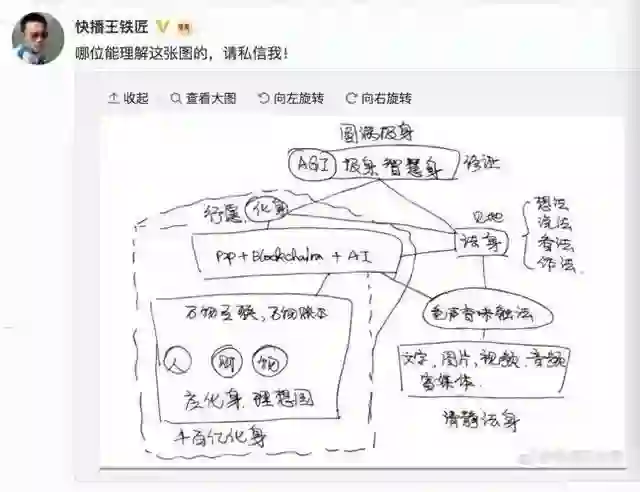 快播王铁匠
哪位能理解这张图的，请私信我！
收起
查看大图
向左旋转
向右旋转
圆满报身
AGI 报身 智慧身
修证
行愿
化身
见地
法身
想法
说法
看法
作法
P2P + Blockchain + AI
万物互联，万物账本
色声香味触法
人
财
物
应化身 理想国
文字，图片，视频，音频
富媒体
千百亿化身
清静法身